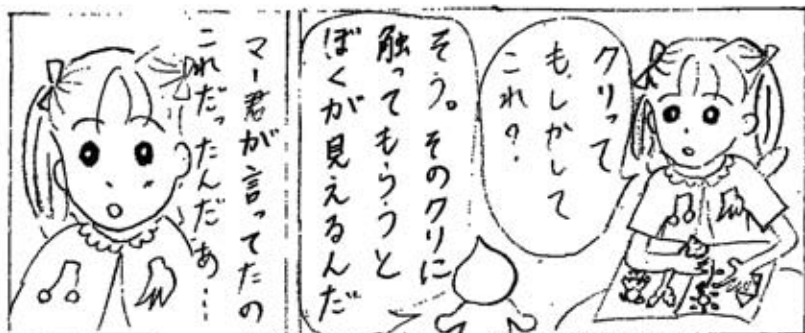 クリって
もしかして
これ？
そう。そのクリに
触ってもらうと
ぼくが見えるんだ
マー君が言ってたの
これだったんだぁ…